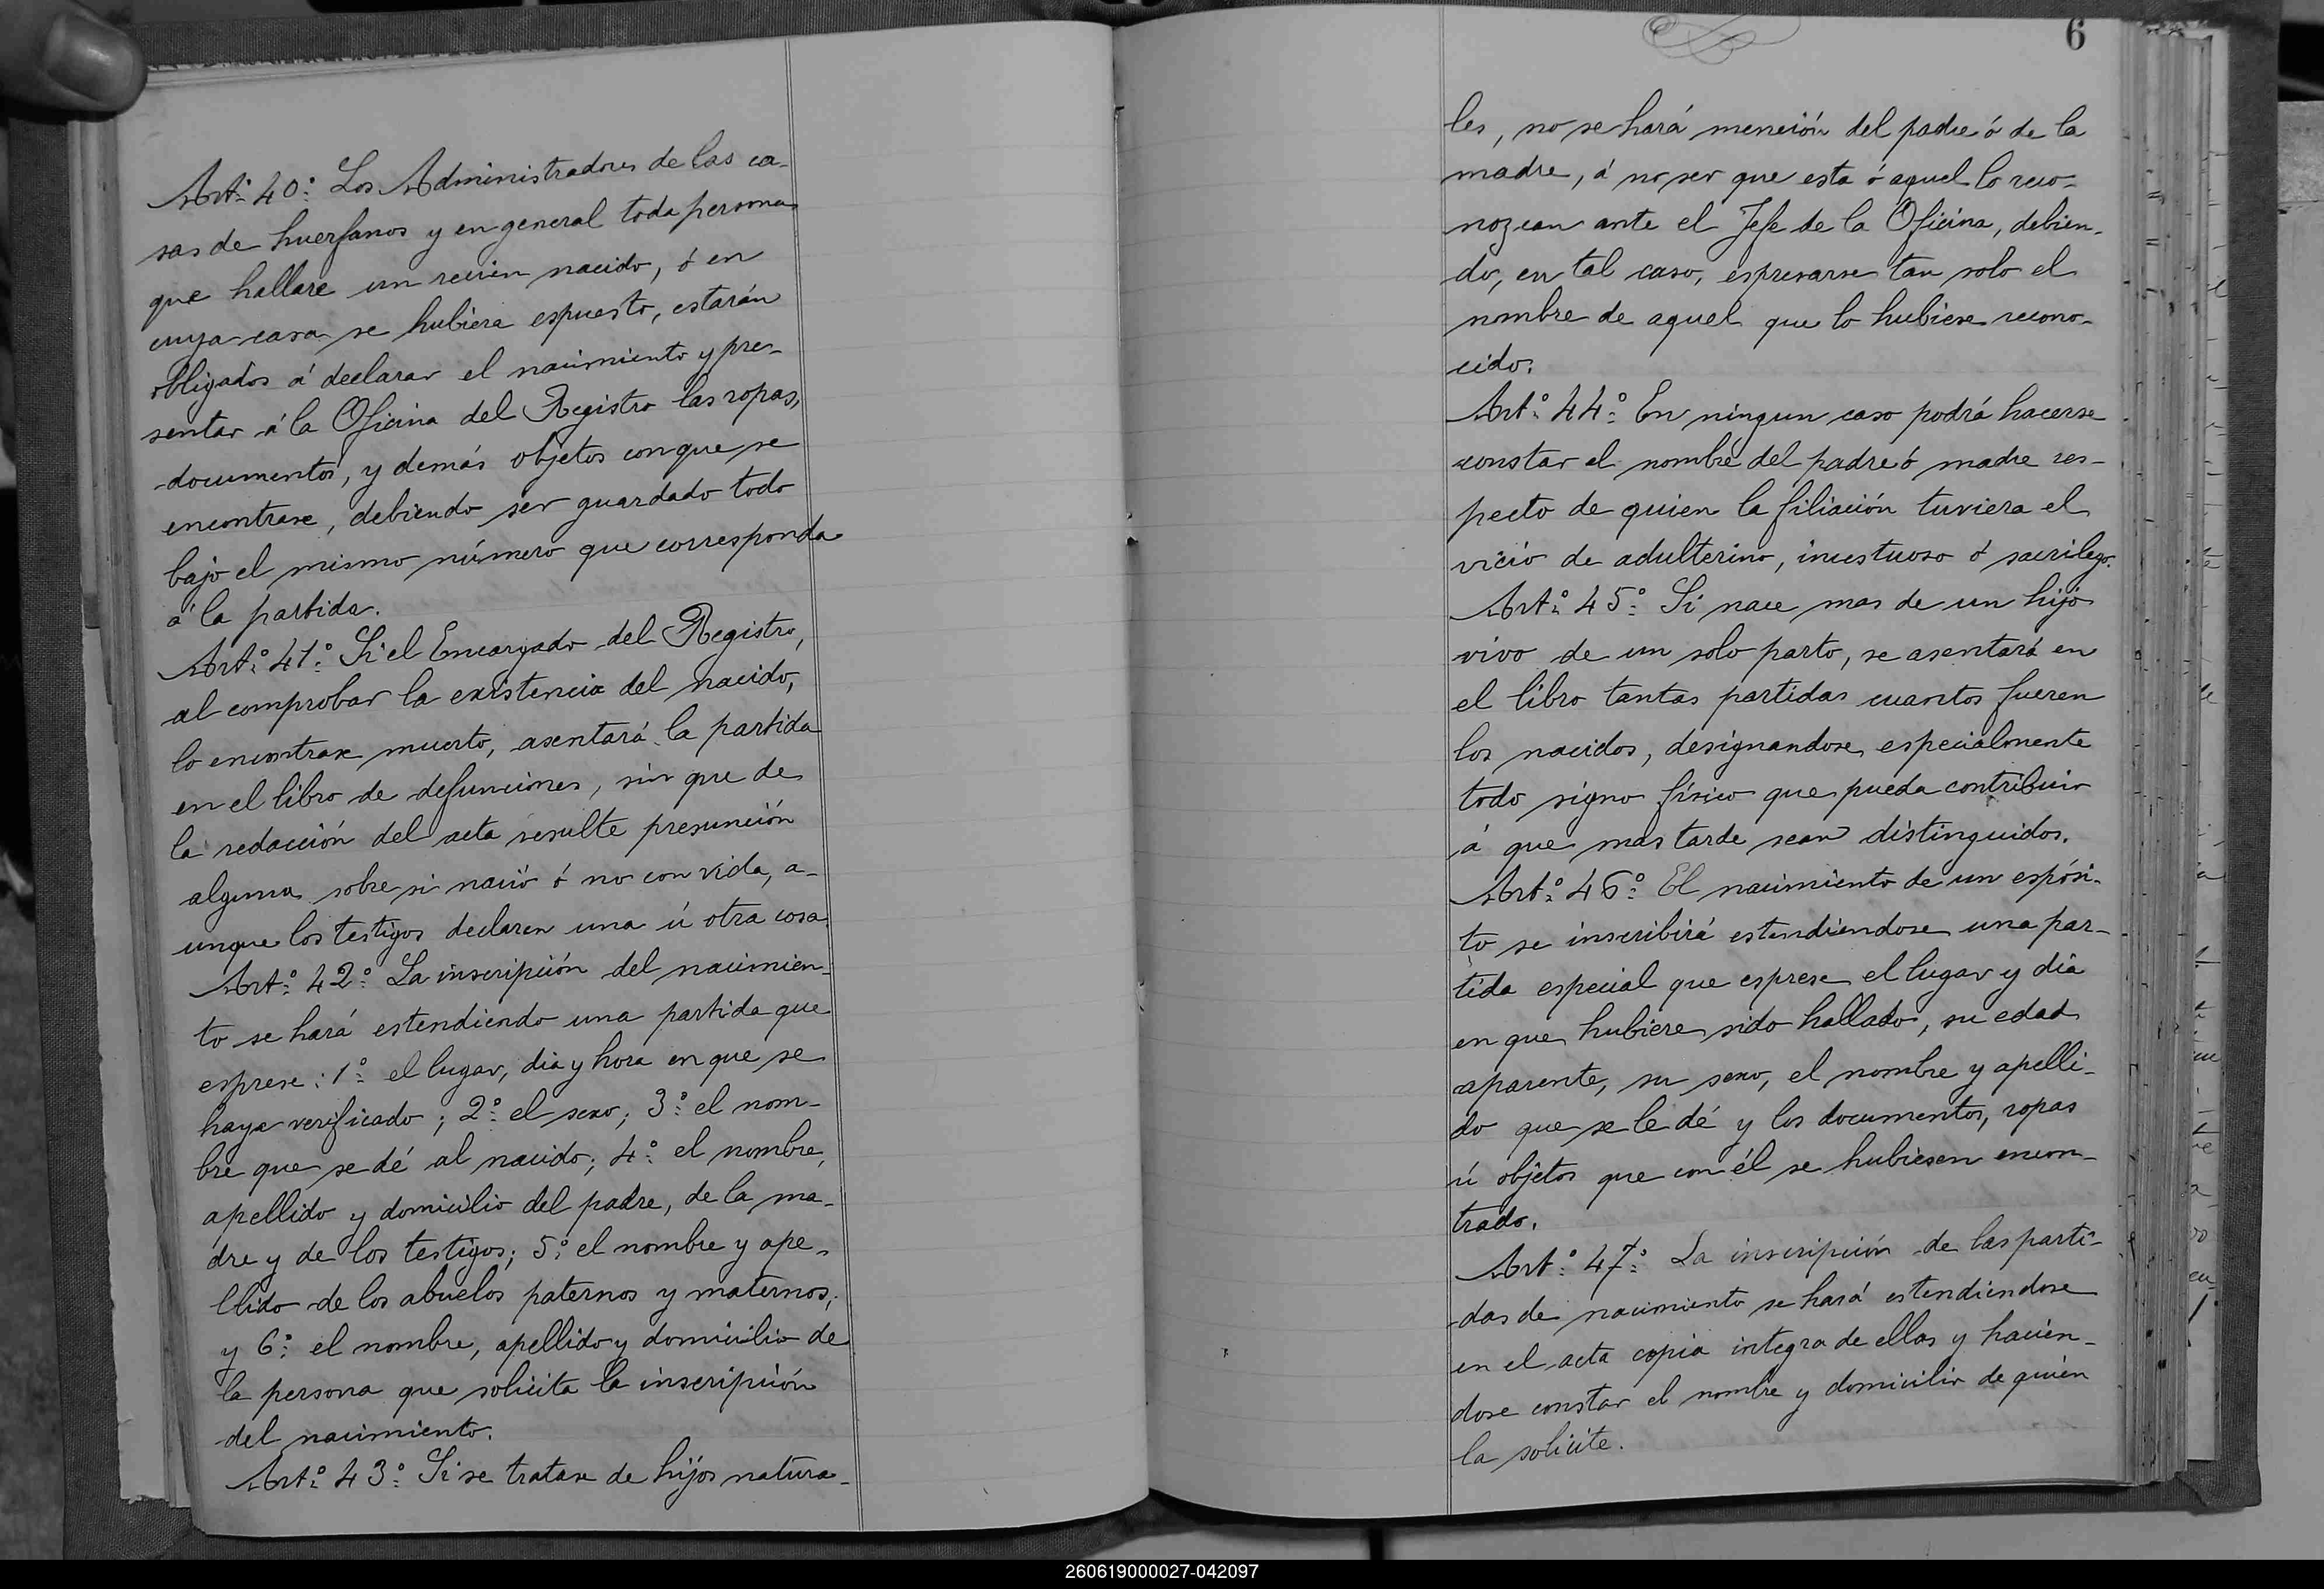 Artº. 40º. Los Administradores de las ca-
sas de huerfanos y en general toda persona
que hallare un recien nacido, ó en
cuya casa se hubiera espuesto, estarán
obligados á declarar el nacimiento y pre-
sentar á la Oficina del Registro las ropas,
documentos, y demás objetos con que se
encontrase, debiendo ser guardado todo
bajo el mismo número que corresponda
á la partida.
Artº. 41º. Si el Encargado del Registro,
al comprobar la existencia del nacido,
lo encontrase muerto, asentará la partida
en el libro de defunciones, sin que de
la redacción del acta resulte presunción
alguna sobre si nació ó no con vida, a-
unque los testigos declaren una ú otra cosa.
Artº. 42º. La inscripción del nacimien-
to se hará estendiendo una partida que
esprese: 1º. el lugar, dia y hora en que se
haya verificado; 2º. el sexo; 3º. el nom-
bre que se dé al nacido; 4º. el nombre,
apellido y domicilio del padre, de la ma-
dre y de los testigos; 5º. el nombre y ape-
llido de los abuelos paternos y maternos;
y 6º. el nombre, apellido y domicilio de
la persona que solicita la inscripción
del nacimiento.
Artº. 43º. Si se tratase de hijos natura-
6
les, no se hará mención del padre ó de la
madre, á no ser que esta ó aquel lo reco-
nozcan ante el Jefe de la Oficina, debien-
do, en tal caso, espresarse tan solo el
nombre de aquel que lo hubiese recono-
cido.
Artº. 44º. En ningun caso podrá hacerse
constar el nombre del padre ó madre res-
pecto de quien la filiación tuviera el
vicio de adulterino, incestuoso ó sacrilego.
Artº. 45º. Si nace mas de un hijo
vivo de un solo parto, se asentará en
el libro tantas partidas cuantos fueren
los nacidos, designandose especialmente
todo signo físico que pueda contribuir
á que mas tarde sean distinguidos.
Artº. 46º. El nacimiento de un espósi-
to se inscribirá estendiendose una par-
tida especial que esprese el lugar y dia
en que hubiere sido hallado, su edad
aparente, su sexo, el nombre y apelli-
do que se le dé y los documentos, ropas
ú objetos que con él se hubiesen encon-
trado.
Artº. 47º. La inscripción de las parti-
das de nacimiento se hará estendiendose
en el acta copia integra de ellas y hacien-
dose constar el nombre y domicilio de quien
la solicite.
260619000027-042097